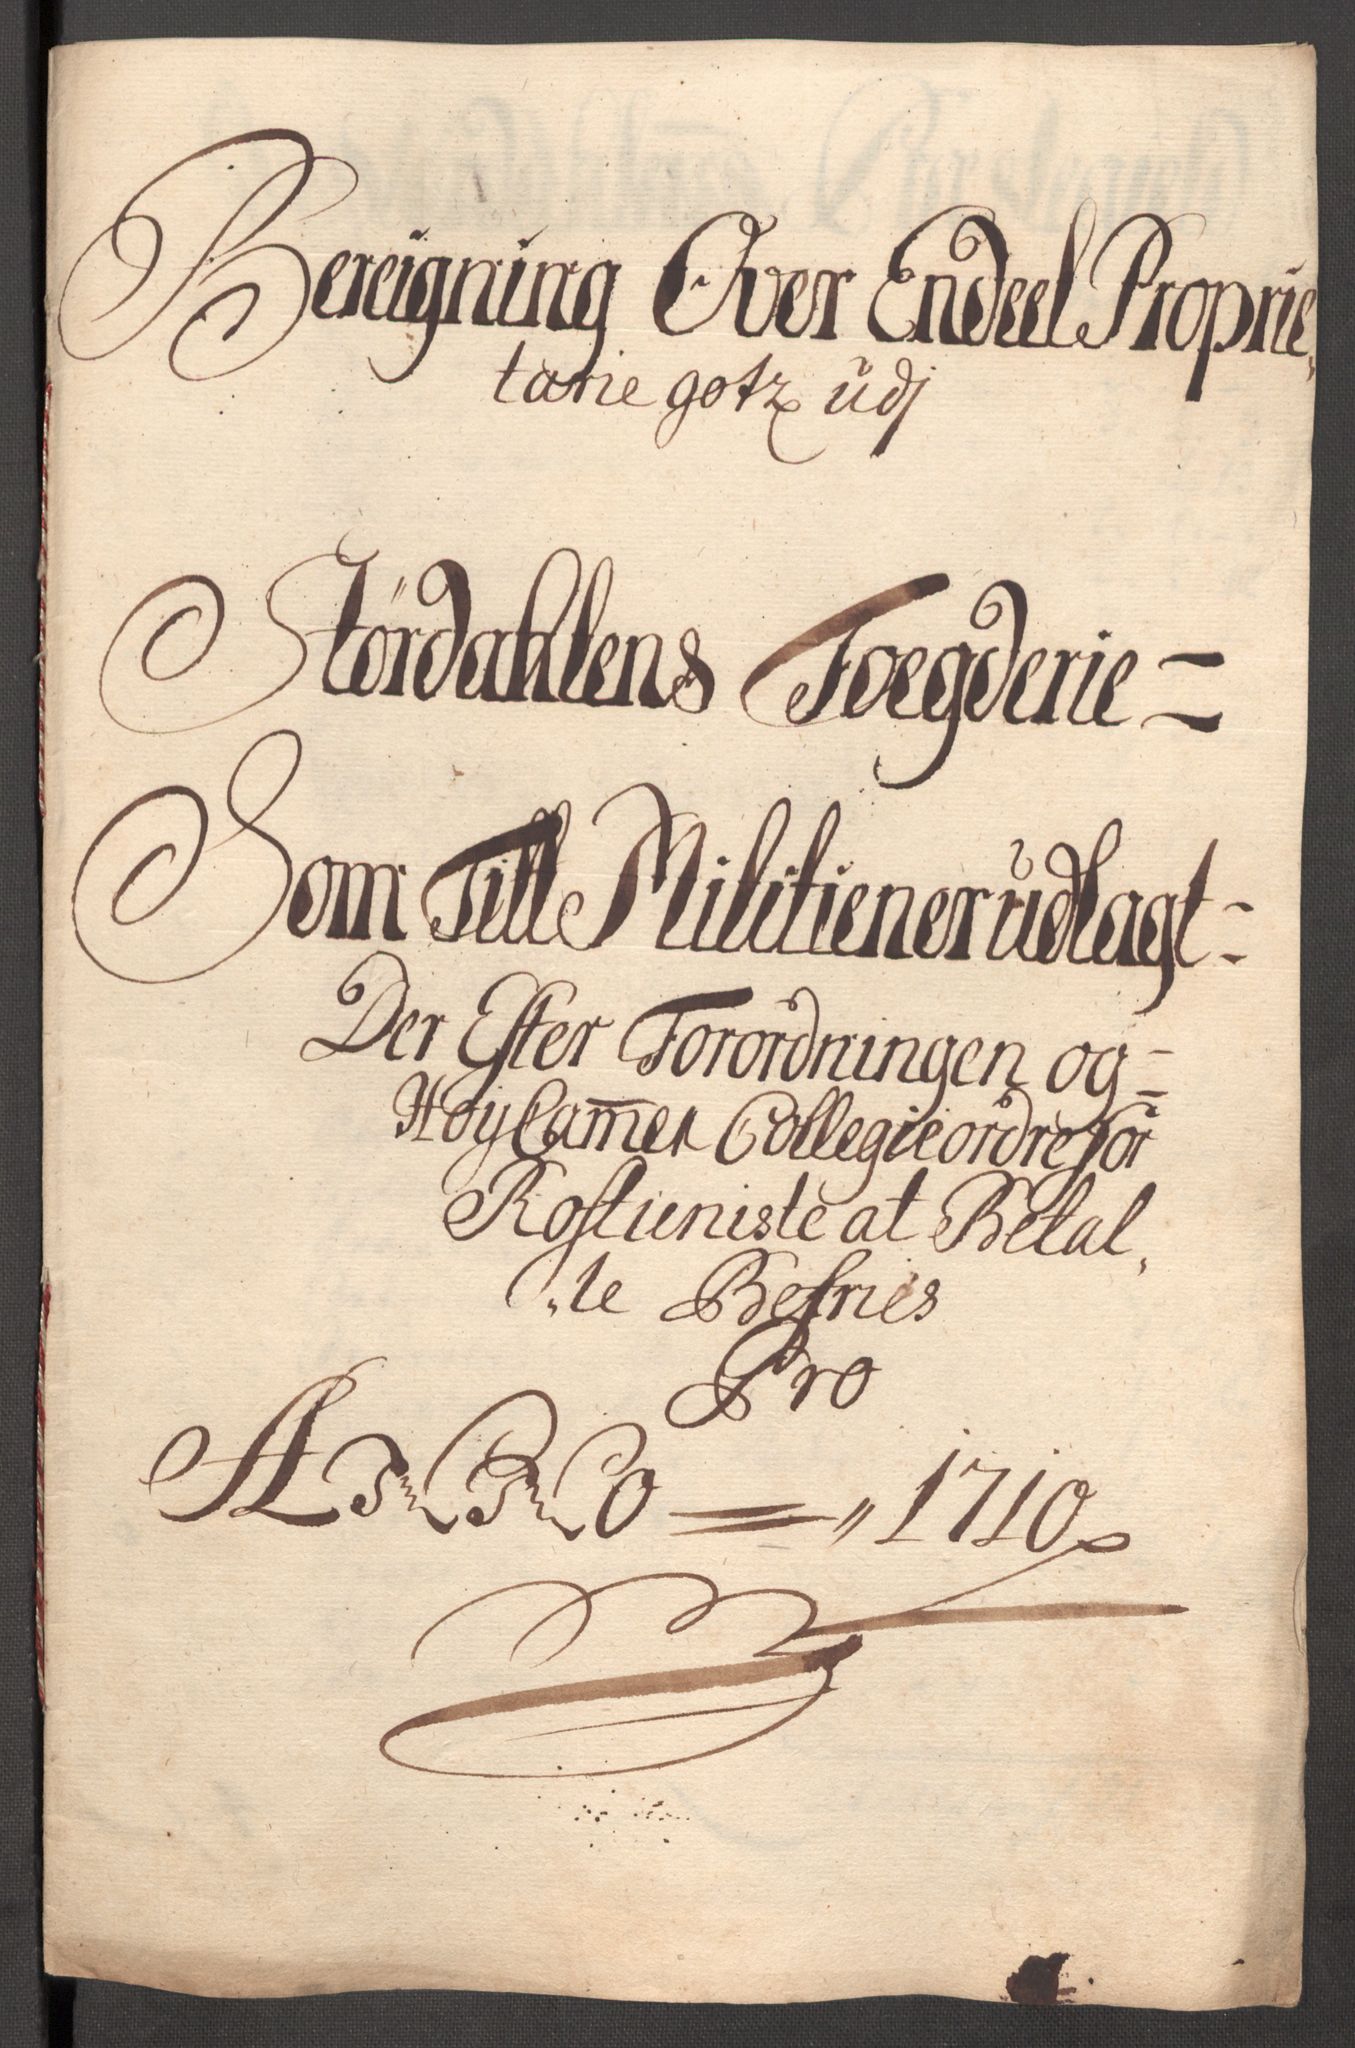 Bereigning Over Endeel Proprie„
tarie gotz udj
Størdahlens Foegderie =
Som Till Militien er udlagt =
Der Efter Forordningen og =
Høy Cam̄er Collegie ordre for
Rostieniste at Betal„
„te Befries
Pro
ANNO = „ 1710